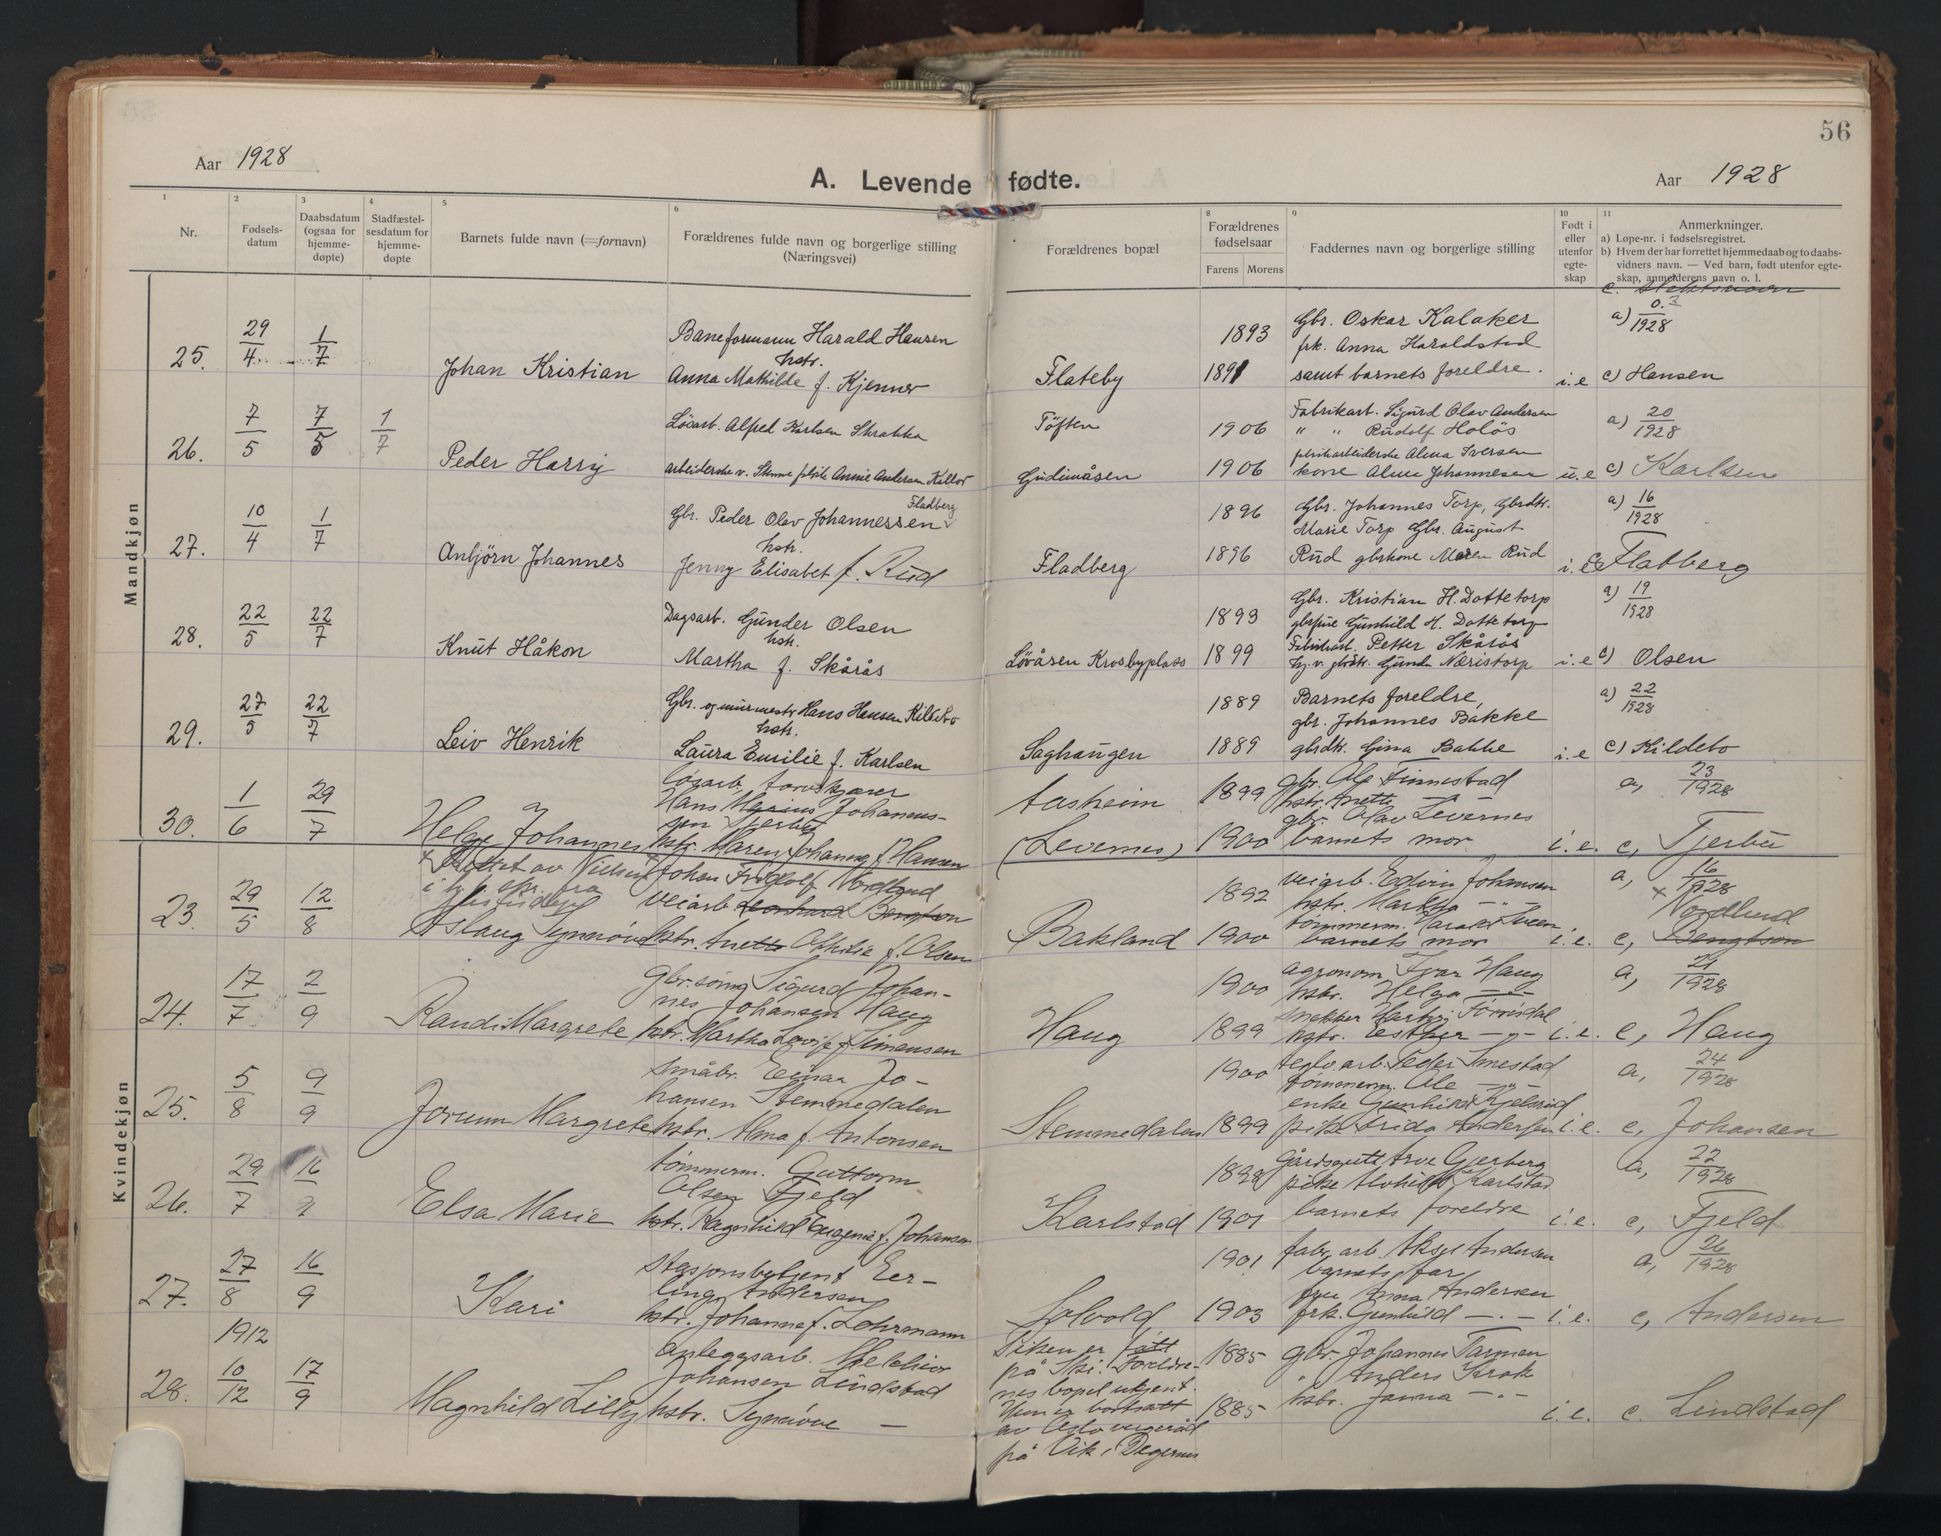 56
Aar 1928
A. Levende fødte.
Aar 1928
1 2 3 4 5 6 8 9 10 11
Nr.
Fødsels-
datum
Daabsdatum
(ogsaa for
hjemme-
døpte)
Stadfæstel-
sesdatum for
hjemme-
døpte
Barnets fulde navn (=fornavn)
Forældrenes fulde navn og borgerlige stilling
(Næringsvei)
Forældrenes bopæl
Forældrenes
fødselsaar
Farens Morens
Faddernes navn og borgerlige stilling
Født i
eller
utenfor
egte-
skap
Anmerkninger.
a) Løpe-nr. i fødselsregistret.
b) Hvem der har forrettet hjemmedaab og to daabs-
vidners navn. — Ved barn, født utenfor egte-
skap, anmelderens navn o. l.
Mandkjøn
25. 29/4 1/7
Johan Kristian
Baneformann Harald Hansen
hstr.
Anna Mathilde f. Kjenner
Flateby
1893
1891
Gbr. Oskar Kalaker
frk. Anna Haraldstad
samt barnets foreldre.
i.e
a) 0.?/1928
c) Hansen
26. 7/5 7/5 1/7
Peder Harry
Løsarb. Alfred Karlsen Skrakka
arbeiderske v. Annie Andersen
Töften
Gudimåsen
1906
1906
Fabrikarb. Sigurd Olav Andersen
" " Rudolf Holös
Alma Iversen
kone Alma Johannesen
u.e
a) 20/1928
c) Karlsen
27. 10/4 1/7
Anbjörn Johannes
Gbr. Peder Olav Johannessen Fladberg
hstr.
Jenny Elisabet f. Rud
Fladberg
1896
1896
Gbr. Johannes Torp, Gbrdtr.
Marie Torp Gbr. August
Rud gbrkone Maren Rud
i.e
a) 16/1928
c) Flatberg
28. 22/5 22/7
Knut Håkon
Dagsarb. Gunder Olsen
hstr.
Martha f. Skårås
Lövåsen Krosbyplass
1893
1899
Gbr. Kristian H. Dottetorp
Gunhild H. Dottetorp
Petter Skårås
Næristorp
i.e
a) 19/1928
c) Olsen
29. 27/5 22/7
Leiv Henrik
Gbr. og murmestr Hans Hansen Kildebo
hstr.
Laura Emilie f. Karlsen
Saghaugen
1889
1889
Barnets foreldre,
gbr. Johannes Bakke
gbrdtr. Gina Bakke
i.e
a) 22/1928
c) Kildebo
30. 1/6 29/7
Helge Johannes
løsarb, torvskjærer
Hans Johannes-
sen Tjerbu
hstr. Maren Johanne f. Hansen
Aasheim
(Levernes)
1899
1900
gbr. Ole Finnestad
hstr. Anette
gbr. Olav Levernes
barnets mor.
i.e.
a, 23/1928
c, Tjerbu
Kvindekjøn
23. 29/5 12/8
Aslaug Synnöve
Johan Fridolf Nordlund
veiarb Leonhard Bengtson
hstr. Anette Othilie f. Olsen
Bakland
1892
1900
veiarb. Edvin Johansen
hstr. Martha -"-
tømmerm. Harald Iveren
barnets mor
i.e.
a, 16/1928
x Nordlund
c, Bengtson
24. 17/7 2/9
Randi Margrete
Gbr.sönn Sigurd Johan-
nes Johansen Haug
hstr. Martha Lovise f. Simensen
Haug
1900
1899
agronom Ivar Haug
hstr. Helga -"-
snekker
hstr. Esther -"-
i.e.
a, 21/1928
c, Haug
25. 5/8 9/9
Jorunn Margrete
småbr. Einar Jo-
hansen Stemmedalen
hstr. Alma f. Antonsen
Stemmedalen
1900
1899
Peder Smestad
tömmerm. Ole -"-
enke Gunhild Kjelsrud
pike Frida Andersen
i.e.
a, 24/1928
c, Johansen
26. 29/7 16/9
Elsa Marie
tömmerm. Guttorm
Olsen Fjeld
hstr. Ragnhild Eugenie f. Johansen
Karlstad
1898
1901
Gårdsgutt Arve Gjerberg
pike Alvhild Karlstad
barnets foreldre
i.e.
a, 22/1928
c, Fjeld
27. 27/8 16/9
Kari
Stasjonsbetjent Er-
ling Andersen
hstr. Johanne f. Lohrmann
Solvold
1901
1903
fabr. arb. Aksel Andersen
barnets far
fru Anna Andersen
frk. Gunhild -"-
i.e.
a, 26/1928
c, Andersen
28. 1912 10/12 17/9
Magnhild Lilly
Anleggsarb. Melchior
Johansen Lindstad
hstr. Synnöve —
Piken er född
på Ski. Foreldre-
nes bopel ukjent.
Hun er bortsatt
av Oslo vergeråd
på Vik i Degernes
1885
1885
gbr. Johannes Tarmen
" Anders Krok
hstr. Janna -"-
i.e.
c. Lindstad